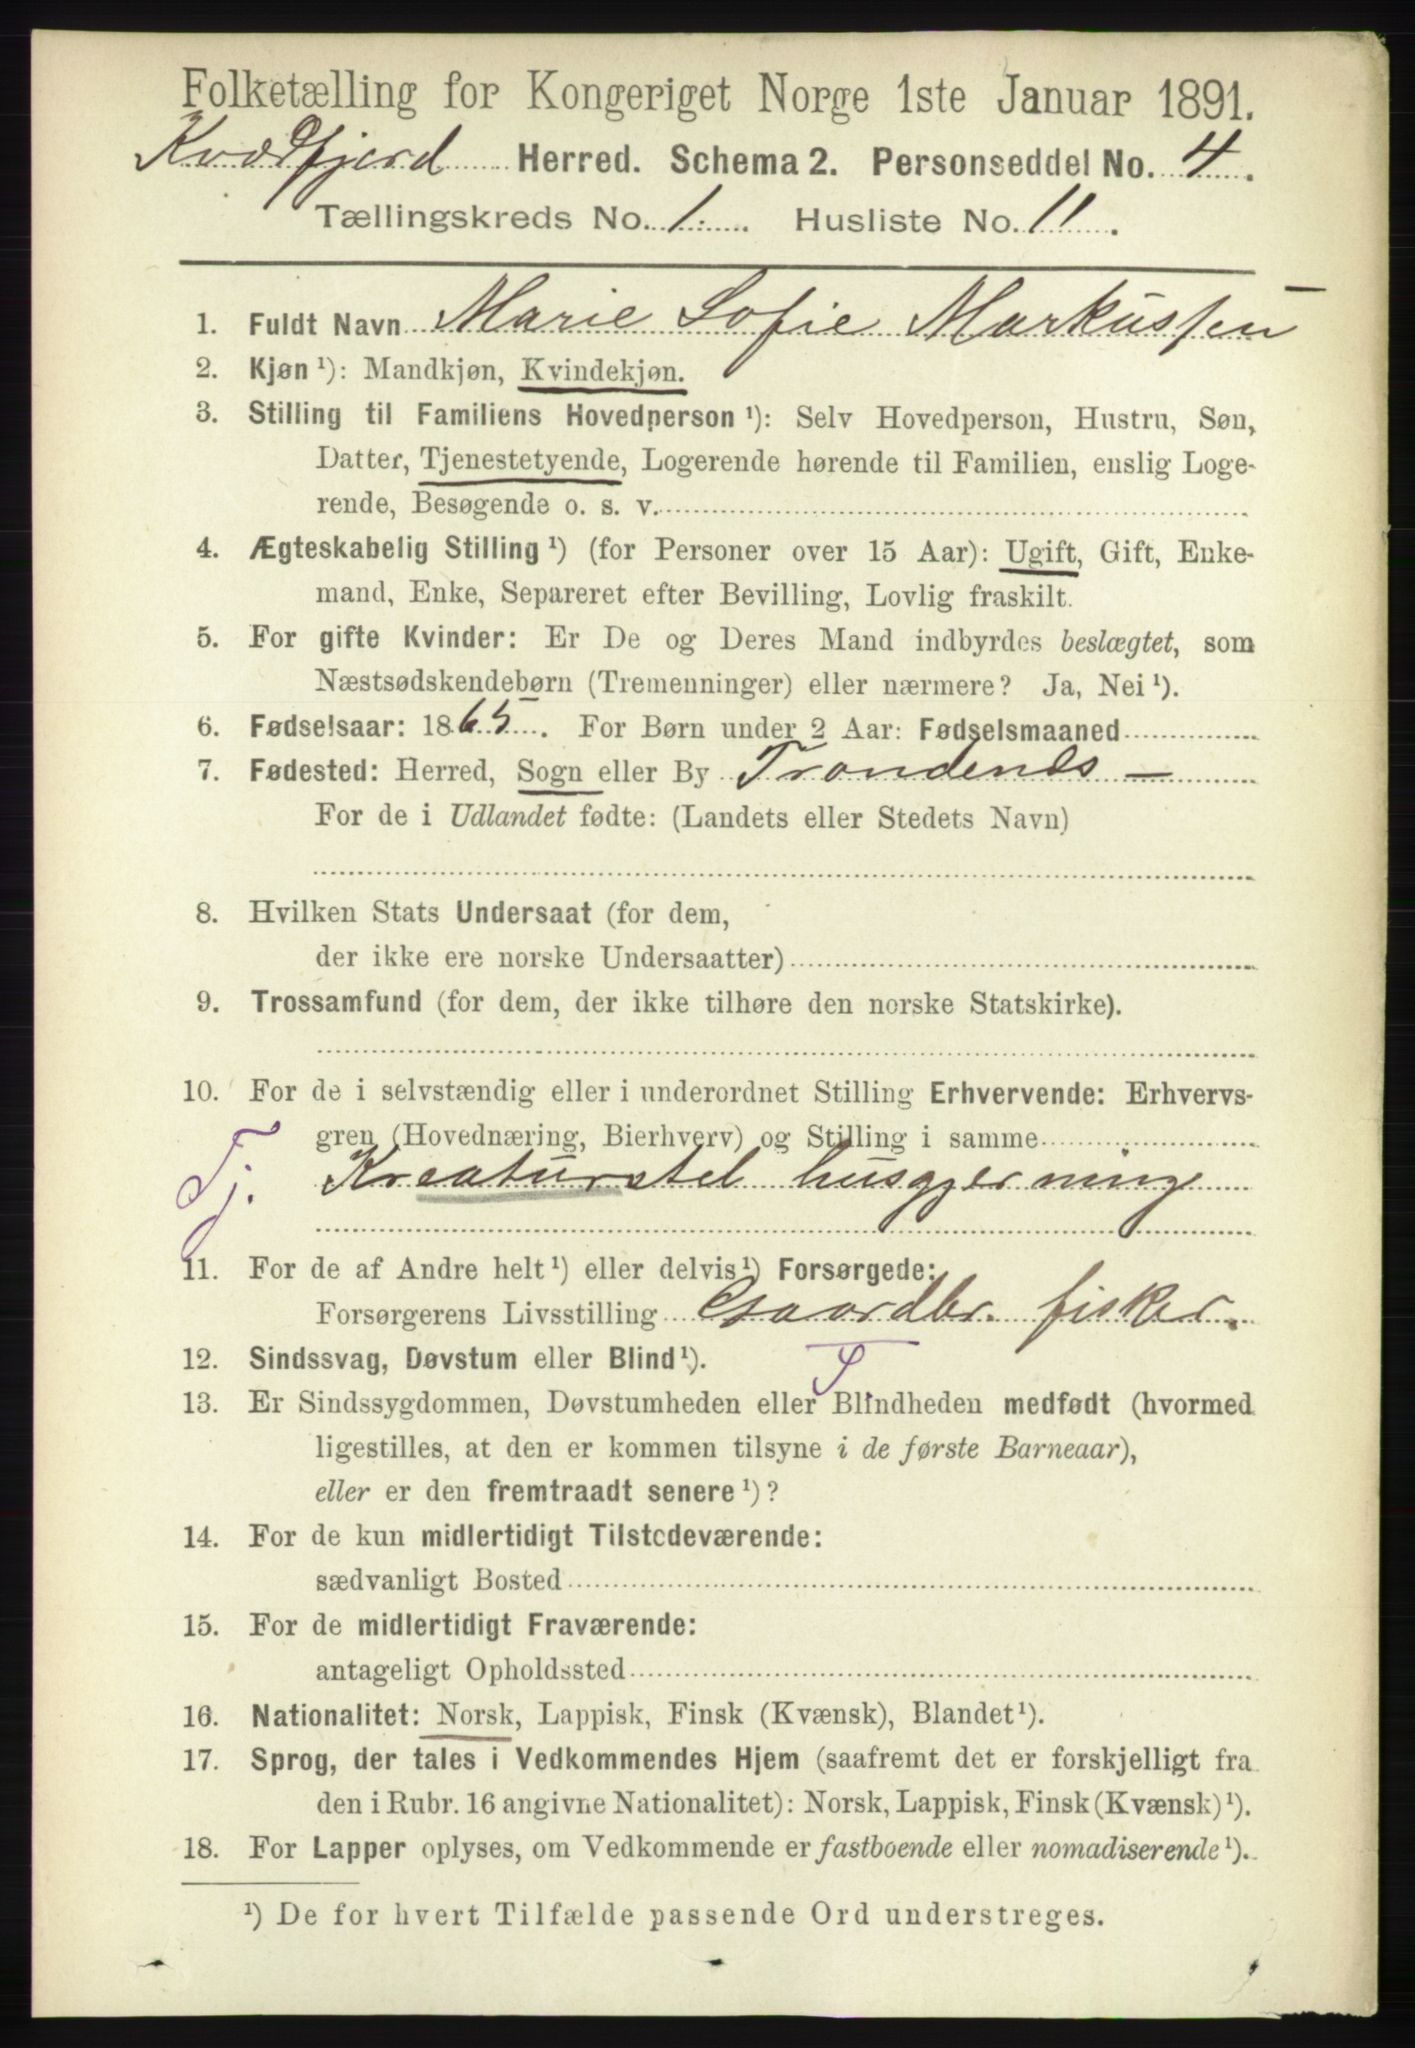 Folketælling for Kongeriget Norge 1ste Januar 1891.
Kvædfjord Herred. Schema 2. Personseddel No. 4.
Tællingskreds No. 1. Husliste No. 11.
1. Fuldt Navn Marie Sofie Markussen
2. Kjøn ¹): Mandkjøn, Kvindekjøn.
3. Stilling til Familiens Hovedperson ¹): Selv Hovedperson, Hustru, Søn,
Datter, Tjenestetyende, Logerende hørende til Familien, enslig Loge-
rende, Besøgende o. s. v.
4. Ægteskabelig Stilling ¹) (for Personer over 15 Aar): Ugift, Gift, Enke-
mand, Enke, Separeret efter Bevilling, Lovlig fraskilt.
5. For gifte Kvinder: Er De og Deres Mand indbyrdes beslægtet, som
Næstsødskendebørn (Tremenninger) eller nærmere? Ja, Nei ¹).
6. Fødselsaar: 1865. For Børn under 2 Aar: Fødselsmaaned
7. Fødested: Herred, Sogn eller By Trondenes –
For de i Udlandet fødte: (Landets eller Stedets Navn)
8. Hvilken Stats Undersaat (for dem,
der ikke ere norske Undersaatter)
9. Trossamfund (for dem, der ikke tilhøre den norske Statskirke).
10. For de i selvstændig eller i underordnet Stilling Erhvervende: Erhvervs-
gren (Hovednæring, Bierhverv) og Stilling i samme
Tj. Kreaturstel husgjerning
11. For de af Andre helt ¹) eller delvis ¹) Forsørgede:
Forsørgerens Livsstilling Gaardbr. fisker.
12. Sindssvag, Døvstum eller Blind ¹). F
13. Er Sindssygdommen, Døvstumheden eller Blindheden medfødt (hvormed
ligestilles, at den er kommen tilsyne i de første Barneaar),
eller er den fremtraadt senere ¹)?
14. For de kun midlertidigt Tilstedeværende:
sædvanligt Bosted
15. For de midlertidigt Fraværende:
antageligt Opholdssted
16. Nationalitet: Norsk, Lappisk, Finsk (Kvænsk), Blandet ¹).
17. Sprog, der tales i Vedkommendes Hjem (saafremt det er forskjelligt fra
den i Rubr. 16 angivne Nationalitet): Norsk, Lappisk, Finsk (Kvænsk) ¹).
18. For Lapper oplyses, om Vedkommende er fastboende eller nomadiserende ¹).
¹) De for hvert Tilfælde passende Ord understreges.